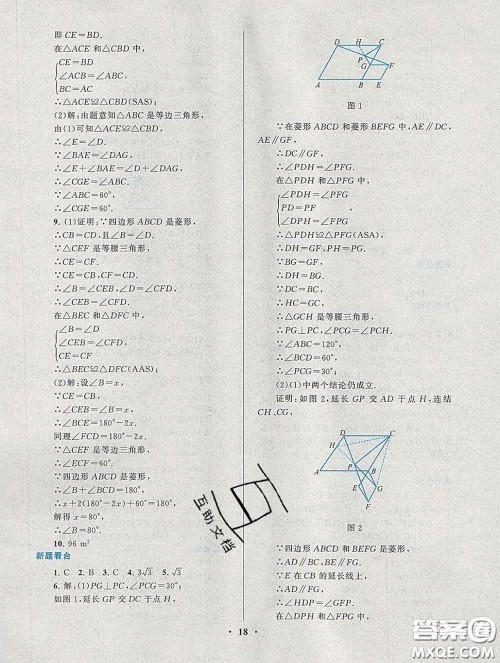 即 CE=BD.
在△ACE 和△CBD 中,
CE=BD
∠ACB=∠ABC,
BC=AC
∴△ACE≌△CBD(SAS);
(2)解:由题意知△ABC 是等边三角形,
由(1)可知△ACE≌△CBD.
∴∠E=∠DAG.
∵∠BAE=∠DAG,
∴∠E+∠BAE=∠DAG+∠BAE.
∴∠CGE=∠ABC.
∵∠ABC=60°,
∴∠CGE=60°.
9. (1)证明:∵四边形 ABCD 是菱形,
∴CB=CD,且∠B=∠D.
∵△CEF 是等腰三角形,
∴CE=CF.
∵CE=CB,CF=CD.
∴∠B=∠CEB,∠D=∠CFD.
∴∠CEB=∠CFD.
在△BEC 和△DFC 中,
∠B=∠D
∠CEB=∠CFD,
CE=CF
∴△BEC≌△DFC(AAS);
(2)解:设∠B=x,
∵CE=CB,
∴∠CEB=x.
∴∠BCE=180°-2x.
同理∠FCD=180°-2x.
∵△CEF 是等边三角形,
∴∠ECF=60°.
∵四边形 ABCD 是菱形,
∴∠B+∠BCD=180°.
∴x+2(180°-2x)+60°=180°.
解得 x=80°,
∴∠B=80°.
10. 96 m²
新题看台
1. C 2. B 3. C 4. 3√3 5. √3
6. 解:(1)PG⊥PC,∠PCG=30°;
如图 1,延长 GP 交 DC 于点 H,
D H C
P
G F
A B E
图 1
∵在菱形 ABCD 和菱形 BEFG 中,AE∥DC,
AE∥GF,
∴DC∥GF.
∴∠PDH=∠PFG.
在△PDH 和△PFG 中,
∠PDH=∠PFG
PD=PF
∠DPH=∠FPG
∴△PDH≌△PFG(ASA).
∴DH=GF,PH=PG.
∵BG=GF,
∴DH=BG.
∵DC=BC,
∴HC=GC.
∴△CHG 是等腰三角形,
∴PG⊥PC,∠PCG=∠PCH.
∵∠ABC=120°,
∴∠BCD=60°.
∴∠PCG=30°;
(2)(1)中两个结论仍成立.
证明:如图 2,延长 GP 交 AD 于点 H,连结
CH,CG,
D C
H
P
A B
G
E
F
图 2
∵四边形 ABCD 和 BEFG 是菱形,
∵E 在 CB 的延长线上,
∴AD∥FG.
∴∠HDP=∠GFP.
互助文档
• 18 •
答案圈
MXQE.COM